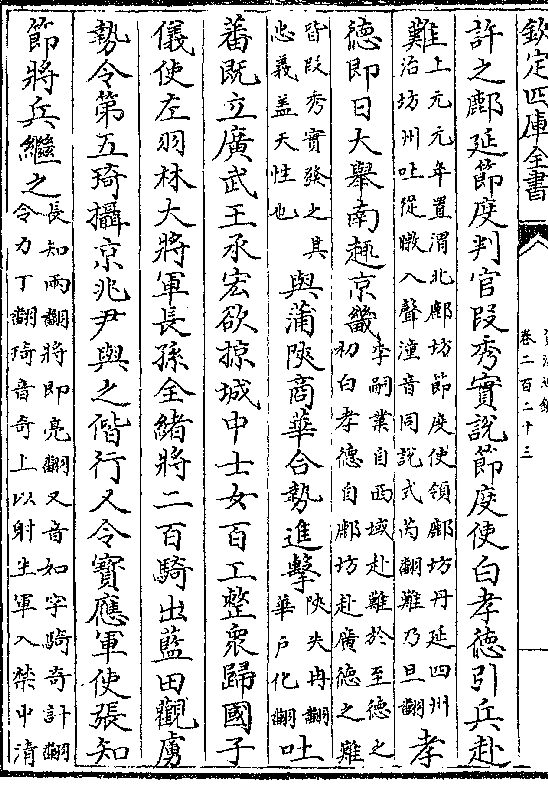 欽定四庫全書
資治通鑑
卷二百二十三
許之鄜延節度判官段秀實說節度使白孝德引兵赴
難上元元年置渭北鄜坊節度使領鄜坊丹延四州治坊州吐從暾入聲潼音同說式芮翻難乃旦翻孝
德即日大舉南趣京畿李嗣業自西域赴難於至德之初白孝德自鄜坊赴廣德之難
皆段秀實發之其忠義蓋天性也與蒲陜商華合勢進擊陜失冉翻華戶化翻吐
蕃既立廣武王承宏欲掠城中士女百工整衆歸國子
儀使左羽林大將軍長孫全緒將二百騎出藍田觀虜
勢令第五琦攝京兆尹與之偕行又令寶應軍使張知
節將兵繼之長知兩翻將即亮翻又音如字騎奇計翻令力丁翻琦音奇上以射生軍入禁中清